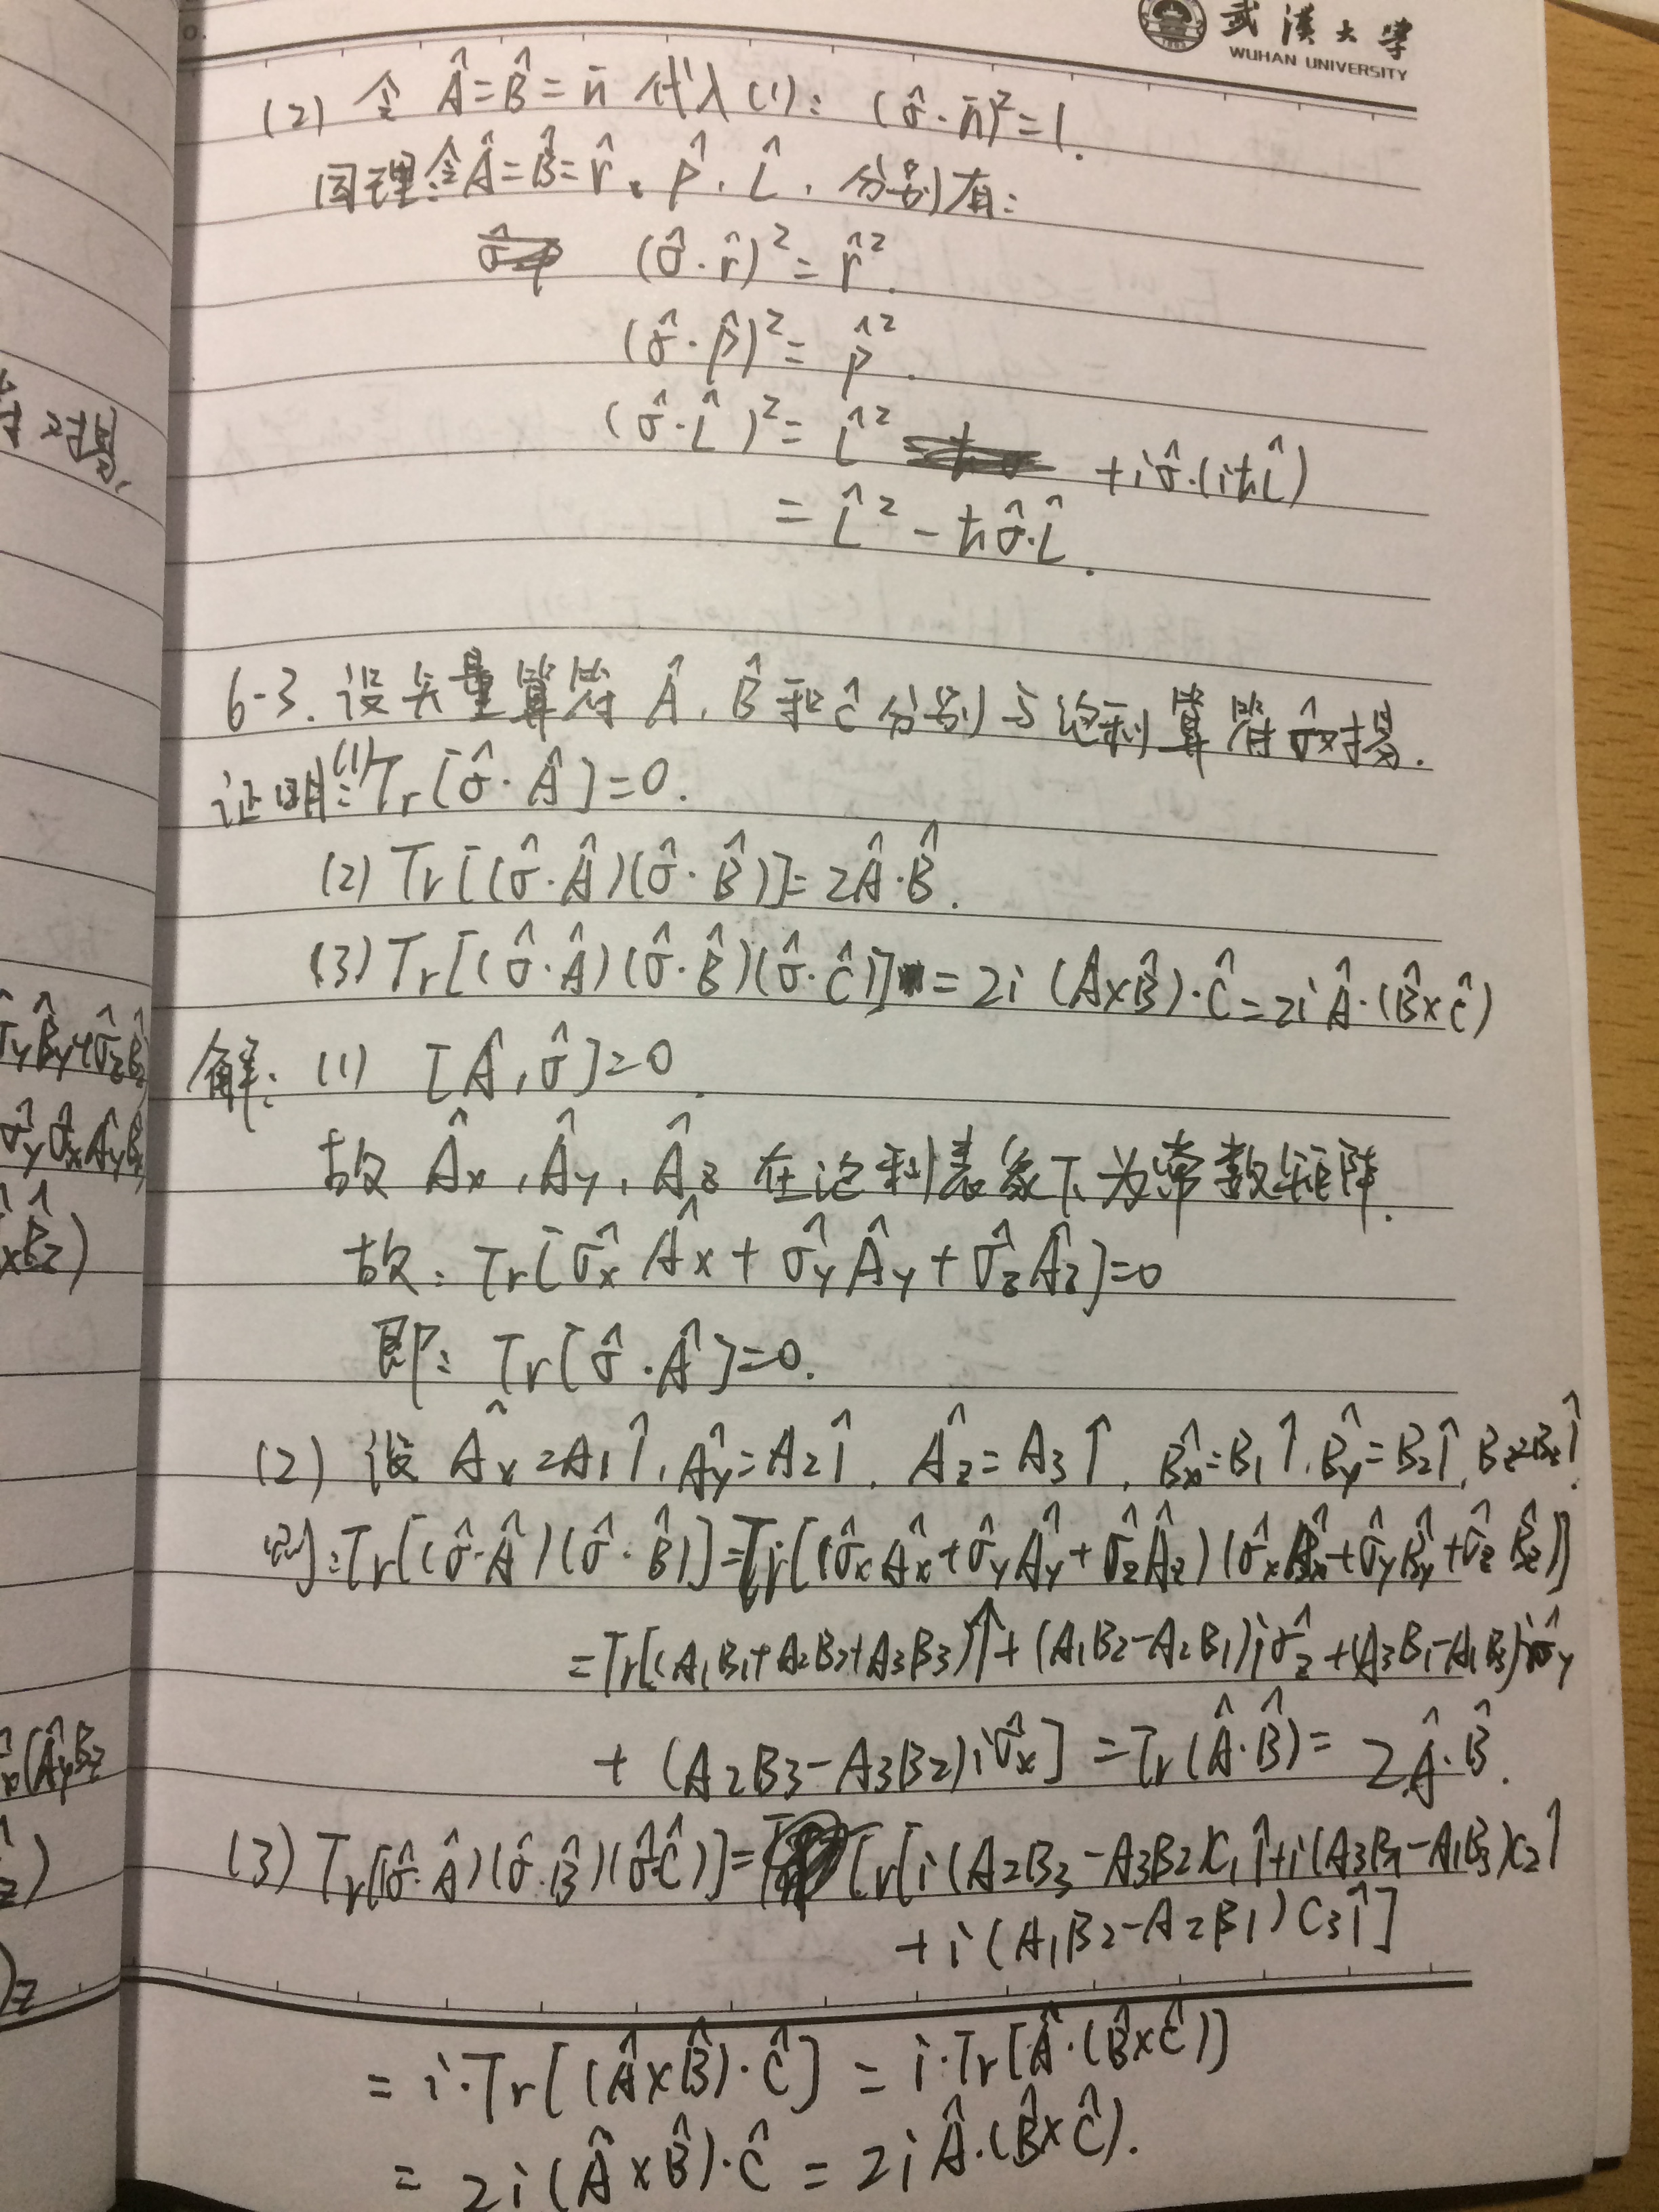 武漢大学
WUHAN UNIVERSITY
(2) 令 Â=B̂=n̄ 代入(1): (σ̂·n̄)²=1.
同理:令Â=B̂=r̂、p̂、L̂,分别有:
(σ̂·r̂)²=r̂².
(σ̂·p̂)²=p̂².
(σ̂·L̂)²=L̂² +iσ̂·(iħL̂)
=L̂²-ħσ̂·L̂.
6-3. 设矢量算符 Â, B̂和ĉ分别与泡利算符σ̂对易.
证明:(1)Tr[σ̂·Â]=0.
(2) Tr[(σ̂·Â)(σ̂·B̂)]=2Â·B̂.
(3) Tr[(σ̂·Â)(σ̂·B̂)(σ̂·ĉ)] =2i (A×B̂)·Ĉ=2iÂ·(B̂×ĉ)
解: (1) [Â,σ̂]=0.
故 Âx, Ây, Âz 在泡利表象下为常数矩阵.
故: Tr[σ̂xÂx+σ̂yÂy+σ̂zÂz]=0
即: Tr[σ̂·Â]=0.
(2) 设 Âx=A1Î, Ây=A2Î, Âz=A3Î, B̂x=B1Î, B̂y=B2Î, Bz=B3Î.
则:Tr[(σ̂·Â)(σ̂·B̂)]=Tr[(σ̂xÂx+σ̂yÂy+σ̂zÂz)(σ̂xB̂x+σ̂yB̂y+σ̂zB̂z)]
=Tr[(A1B1+A2B2+A3B3)Î+(A1B2-A2B1)iσ̂z+(A3B1-A1B3)iσ̂y
+(A2B3-A3B2)iσ̂x]=Tr(Â·B̂)=2Â·B̂.
(3) Tr[(σ̂·Â)(σ̂·B̂)(σ̂·Ĉ)]=Tr[i(A2B3-A3B2)C1Î+i(A3B1-A1B3)C2Î
+i(A1B2-A2B1)C3Î]
=i·Tr[(Â×B̂)·Ĉ]=i·Tr[Â·(B̂×Ĉ)]
=2i(Â×B̂)·Ĉ=2iÂ·(B̂×Ĉ).